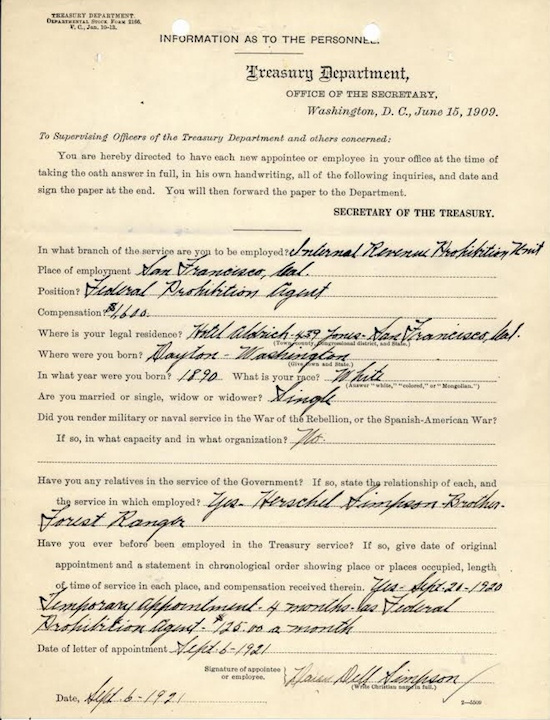 TREASURY DEPARTMENT.
DEPARTMENTAL STOCK FORM 2186.
V. C., Jan. 10-13.
INFORMATION AS TO THE PERSONNEL.
Treasury Department,
OFFICE OF THE SECRETARY,
Washington, D. C., June 15, 1909.
To Supervising Officers of the Treasury Department and others concerned:
You are hereby directed to have each new appointee or employee in your office at the time of
taking the oath answer in full, in his own handwriting, all of the following inquiries, and date and
sign the paper at the end. You will then forward the paper to the Department.
SECRETARY OF THE TREASURY.
In what branch of the service are you to be employed? Internal Revenue Prohibition Unit
Place of employment San Francisco, Cal.
Position? Federal Prohibition Agent
Compensation? $1,600.
Where is your legal residence? Hotel Aldrich-439 Jones-San Francisco, Cal.
(Town, county, Congressional district, and State.)
Where were you born? Dayton - Washington
(Give town and State.)
In what year were you born? 1890 What is your race? White
(Answer "white," "colored," or "Mongolian.")
Are you married or single, widow or widower? Single
Did you render military or naval service in the War of the Rebellion, or the Spanish-American War?
If so, in what capacity and in what organization? No.
Have you any relatives in the service of the Government? If so, state the relationship of each, and
the service in which employed? Yes- Herschel Simpson-Brother-
Forest Ranger
Have you ever before been employed in the Treasury service? If so, give date of original
appointment and a statement in chronological order showing place or places occupied, length
of time of service in each place, and compensation received therein. Yes-Sept. 20-1920
Temporary Appointment-4 months-as Federal
Prohibition Agent-$125.00 a month
Date of letter of appointment Sept. 6-1921
Signature of appointee
or employee. Dell Simpson
(Write Christian name in full.)
Date, Sept. 6-1921